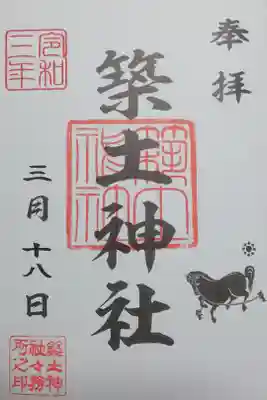 奉拝
築土神社
築土神社
令和三年
三月十八日
築土神社々務所之印